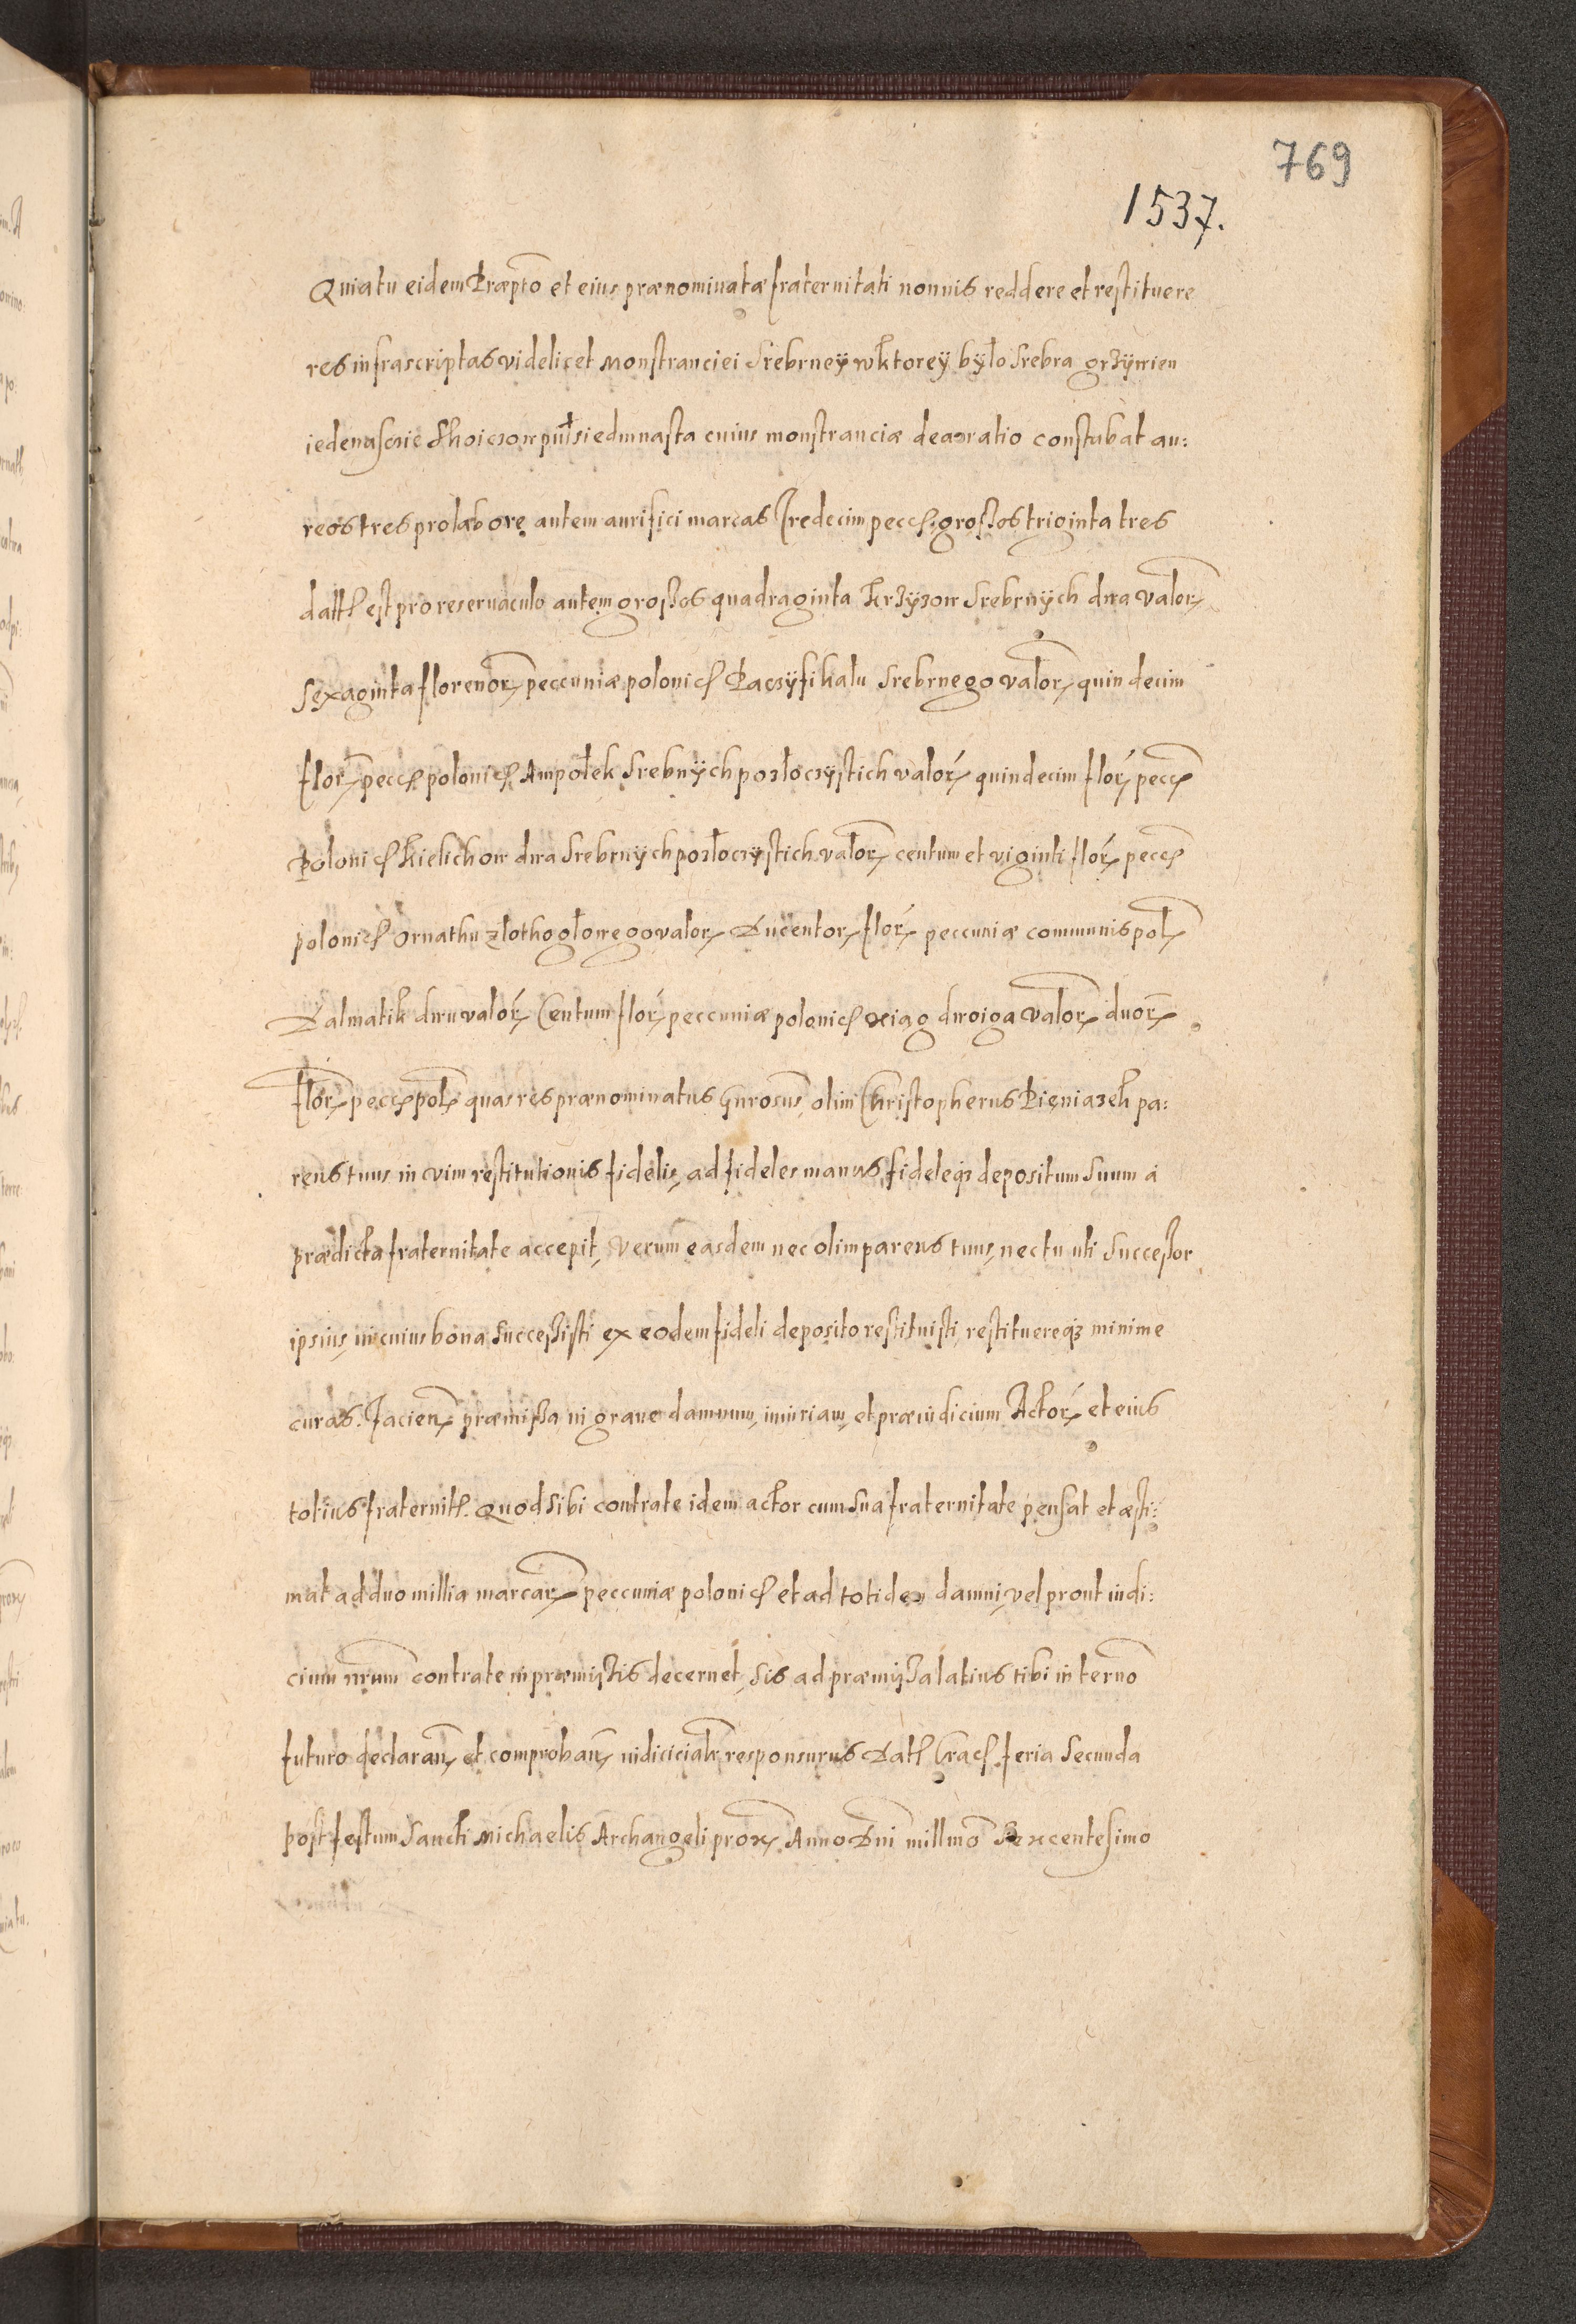 769
1537.
Quia tu eidem Præpto et eius prænominatæ fraternitati non vis reddere et restituere
res infrascriptas videlicet Monstranciei Srebrney wktorey było Srebra grzywien
iedenascie Skoiczow pułsiedmnasta cuius monstranciæ deauratio constabat au:
reos tres pro labore autem aurifici marcas Tredecim pecc. grossos triginta tres
datt est pro reseruaculo autem grossos quadraginta krzyzow Srebrnÿch dwa valor
Sexaginta florenor peccuniæ polonic Pacsÿfikalu Srebrnego valor quindecim
flor pecc polonic Ampołek Srebnÿch pozłoczÿstich valor quindecim flor pecc
Polonic Kielichow dwa Srebrnÿch pozłoczÿstich valor centum et viginti flor pecc
polonic Ornathu złothogłowego valor Ducentor flor peccuniæ communis pol
Dalmatik dwu valor Centum flor peccuniæ polonic xiag dwoiga valor duor
flor pecc pol quas res prænominatus Gnrosus olim Christopherus Pieniazek pa:
rens tuus in vim restitutionis fidelis, ad fideles manus, fideleqz depositum Suum á
prædicta fraternitate accepit, verum easdem nec olim parens tuus, nec tu uti Successor
ipsius, in cuius bona Successisti ex eodem fideli deposito restituisti, restituereqz minime
curas. Facien præmissa in graue damnum, iniuriam, et præiudicium Actor et eius
totius fraternit. Quod Sibi contra te idem actor cum Sua fraternitate pensat et æsti:
mat ad duo millia marcar peccuniæ polonic et ad totidem damni, vel prout iudi:
cium nrum contra te in præmissis decernet, Sis ad præmissa latius tibi in terno
futuro declaran et comproban iudiciciałr responsurus Dat Crac. feria Secunda
post festum Sancti Michaelis Archangeli prox Anno Dni millmo Sexcentesimo